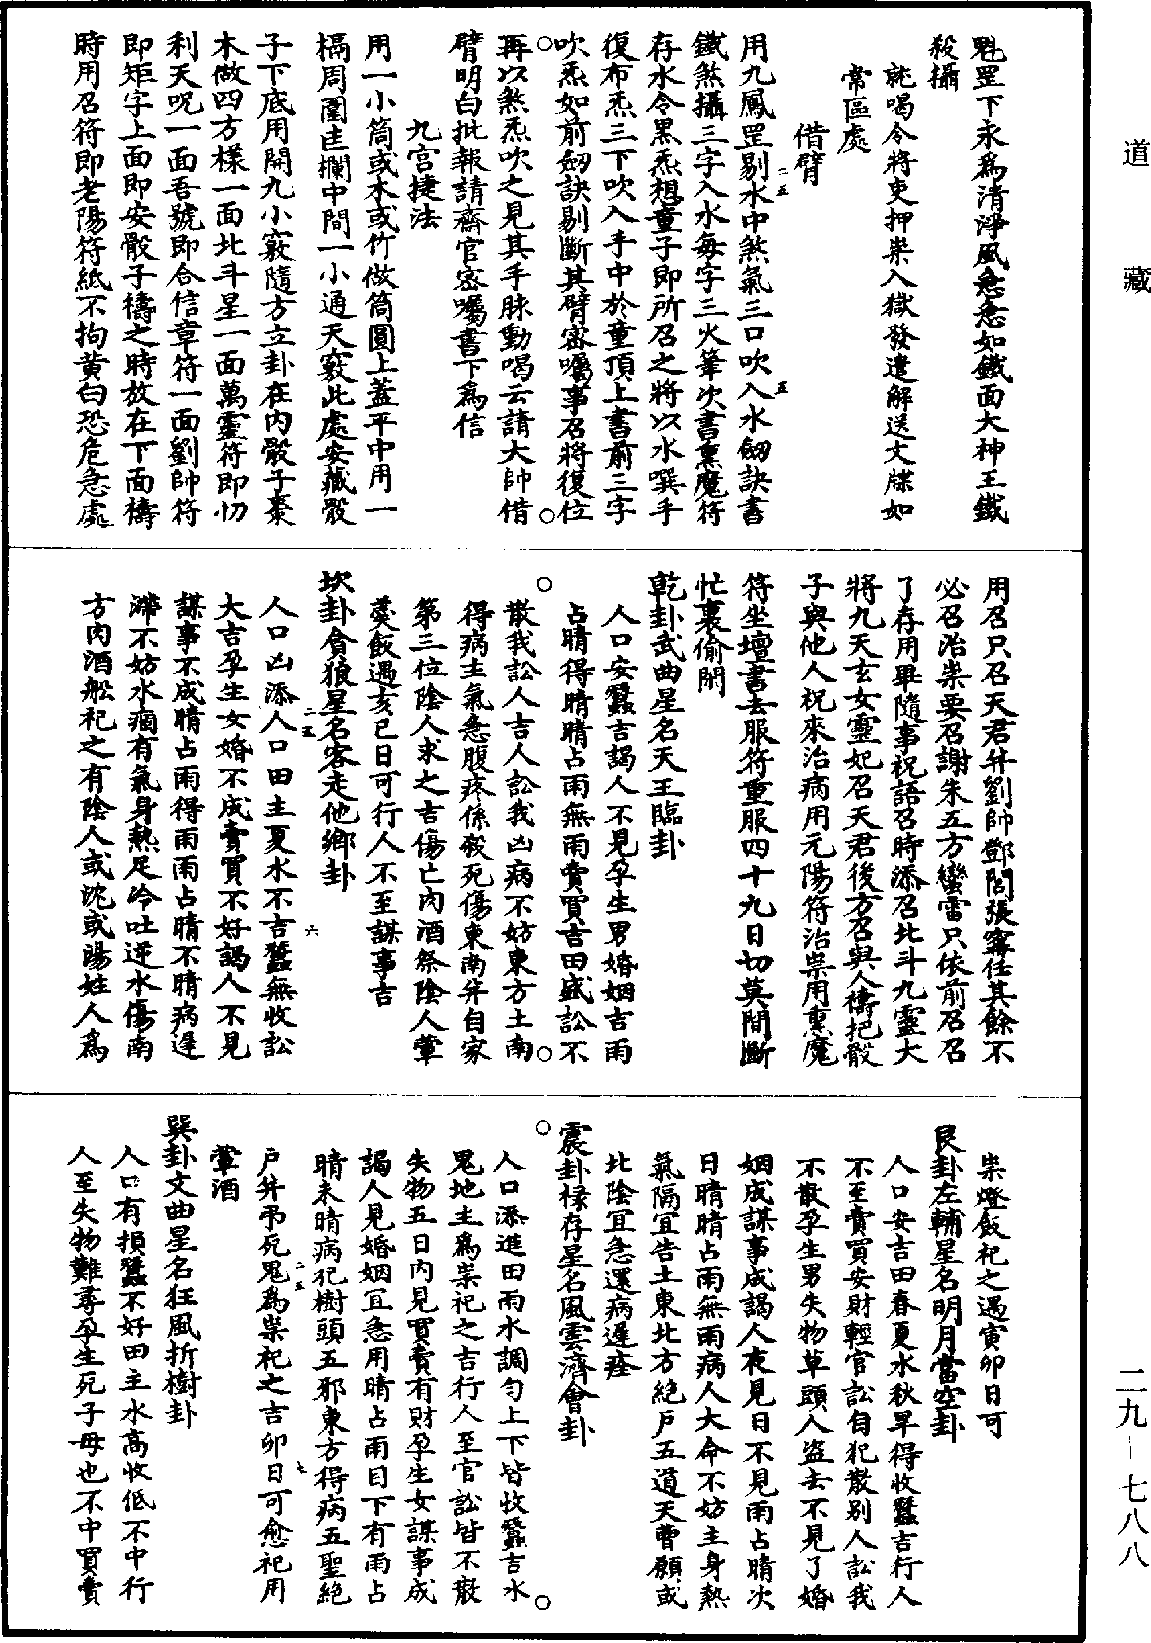 道藏
魁罡下永為清淨風急急如鐵面大神王鐵
殺攝
就喝令將吏押祟入獄發遣解送文牒如
常區處
借臂
用九鳳罡剔水中煞氣三口吹入水劒訣書
鐵煞攝三字入水每字三火筆次書熏魔符
存水令黑炁想童子即所召之將以水噀手
復布炁三下吹入手中於童頂上書前三字
吹炁如前劒訣剔斷其臂密囑事召將復位
再以煞炁吹之見其手脉動喝云請大帥借
臂明白批報請齋官密囑書下為信
九宮捷法
用一小筒或木或竹做筒圓上蓋平中用一
槅周圍圭攔中間一小通天竅此處安藏骰
子下底用開九小竅隨方立卦在內骰子棗
木做四方樣一面北斗星一面萬靈符即忉
利天呪一面吾號即合信章符一面劉帥符
即矩字上面即安骰子禱之時放在下面禱
時用召符即老陽符紙不拘黃白恐危急處
用召只召天君并劉帥鄧閻張寗任其餘不
必召治祟要召謝朱五方蠻雷只依前召召
了存用畢隨事祝語召時添召北斗九靈大
將九天玄女靈妃召天君後方召與人禱把骰
子與他人祝來治病用元陽符治祟用熏魔
符坐壇書去服符重服四十九日切莫間斷
忙裏偷閑
乾卦武曲星名天王臨卦
人口安蠶吉謁人不見孕生男婚姻吉雨
占晴得晴晴占雨無雨賣買吉田盛訟不
散我訟人吉人訟我凶病不妨東方土南
得病主氣急腹疼係殺死傷東南并自家
第三位陰人求之吉傷亡肉酒祭陰人葷
羹飯過亥巳日可行人不至謀事吉
坎卦貪狼星名客走他鄉卦
人口凶添人口田主夏水不吉蠶無收訟
大吉孕生女婚不成賣買不好謁人不見
謀事不成晴占雨得雨雨占晴不晴病遲
滯不妨水痼有氣身熱足冷吐逆水傷南
方肉酒舩祀之有陰人或沈或湯姓人為
祟燈飯祀之過寅卯日可
艮卦左輔星名明月當空卦
人口安吉田春夏水秋旱得收蠶吉行人
不至賣買安財輕官訟自犯散別人訟我
不散孕生男失物草頭入盜去不見了婚
姻成謀事成謁人夜見日不見雨占晴次
日晴晴占雨無雨病人大命不妨主身熱
氣隔宜告土東北方絶戶五道天曹願或
北陰宜急還病遲痊
震卦祿存星名風雲濟會卦
人口添進田雨水調勻上下皆收蠶吉水
鬼地主為祟祀之吉行人至官訟皆不散
失物五日內見買賣有財孕生女謀事成
謁人見婚姻宜急用晴占雨目下有雨占
晴未晴病祀樹頭五邪東方得病五聖絶
戶并弔死鬼為祟祀之吉卯日可愈祀用
葷酒
巽卦文曲星名狂風折樹卦
人口有損蠶不好田主水高收低不中行
人至失物難尋孕生死子母也不中買賣
二九—七八八